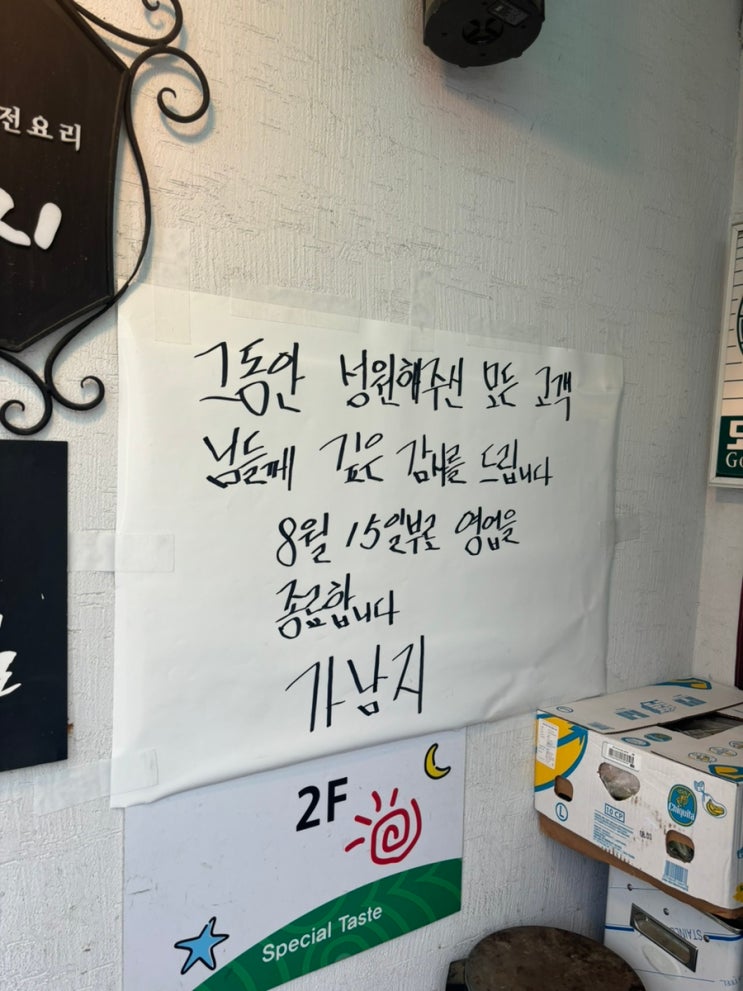 전요리
지
그동안 성원해주신 모든 고객
님들께 깊은 감사를 드립니다
8월 15일부로 영업을
종료합니다
가남지
2F
Special Taste
Chiquita
10 CP
L
STAINLE
도
Go